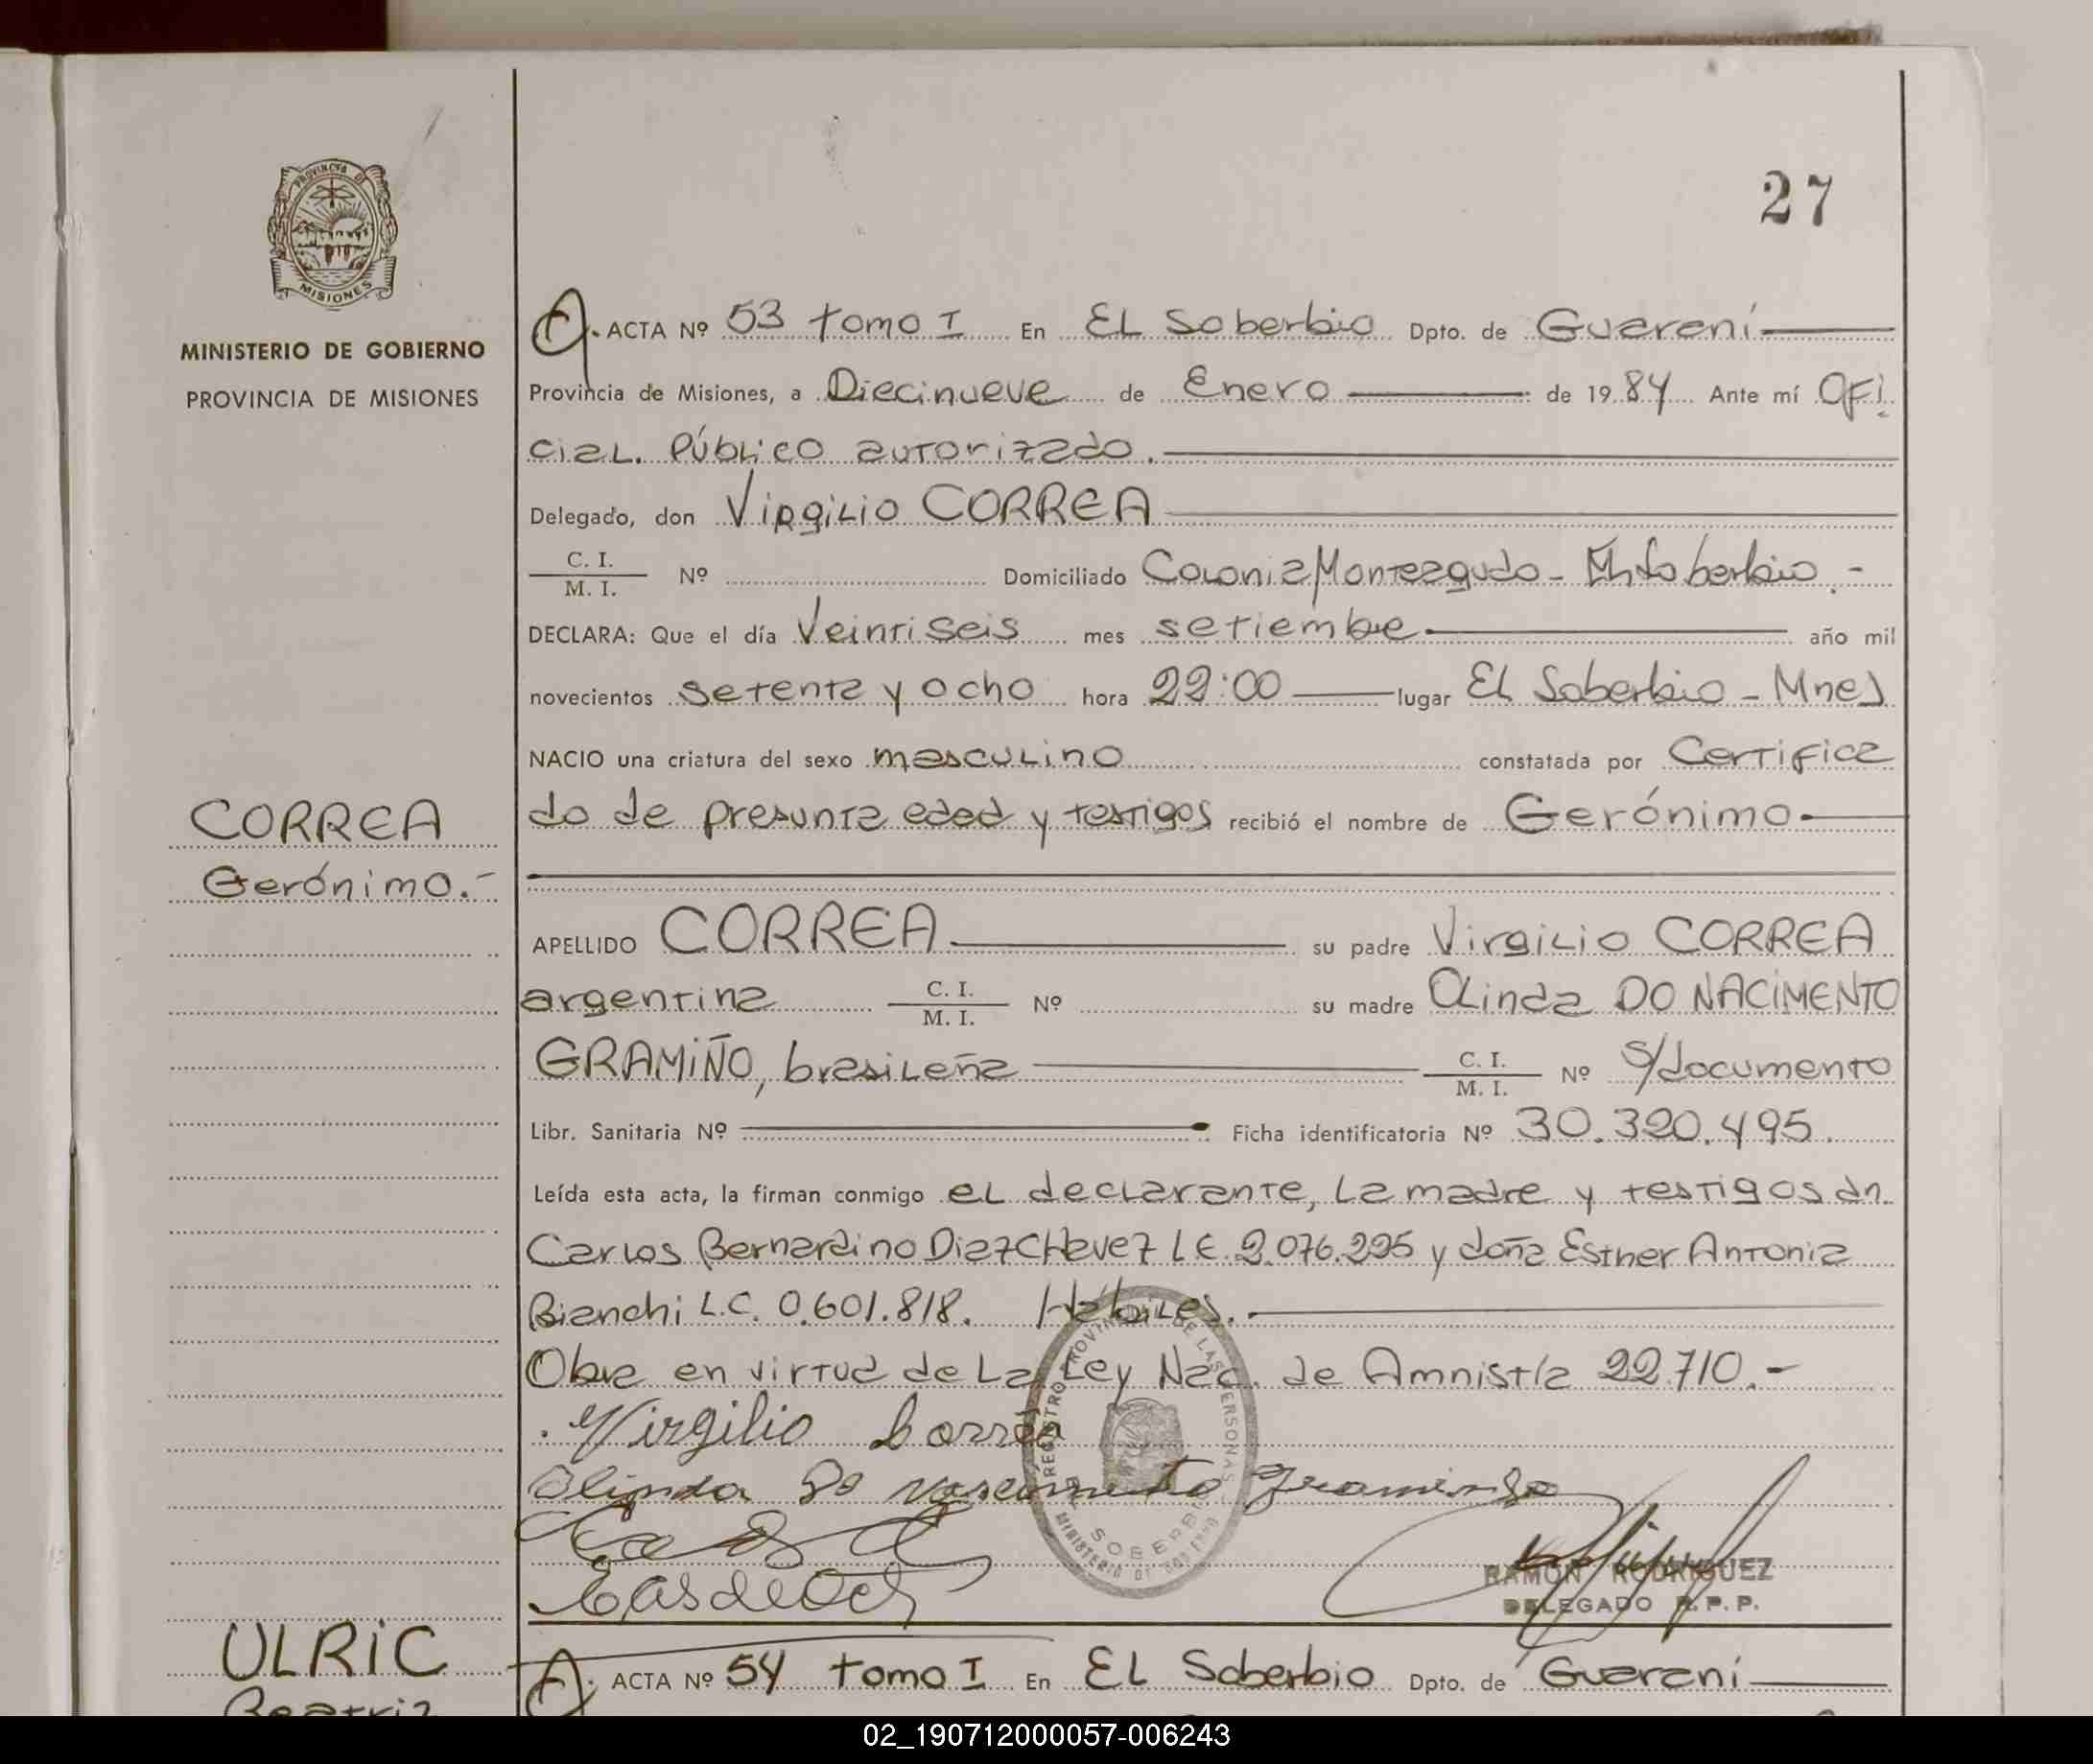 27
PROVINCIA DE
MISIONES
MINISTERIO DE GOBIERNO
PROVINCIA DE MISIONES
CORREA
Gerónimo.-
A. ACTA Nº 53 tomo I En EL Soberbio Dpto. de Guaraní
Provincia de Misiones, a Diecinueve de Enero de 1984 Ante mí Ofi
cial Público autorizado.
Delegado, don Virgilio CORREA
C. I.
M. I. Nº Domiciliado Colonia Monteagudo - El Soberbio.-
DECLARA: Que el día Veintiseis mes setiembre año mil
novecientos setenta y ocho hora 22:00 lugar El Soberbio - Mnes
NACIO una criatura del sexo masculino constatada por Certifica
do de presunta edad y testigos recibió el nombre de Gerónimo
APELLIDO CORREA su padre Virgilio CORREA
argentina C. I. M. I. Nº su madre Olinda DO NACIMENTO
GRAMIÑO, brasileña C. I. M. I. Nº S/documento
Libr. Sanitaria Nº Ficha identificatoria Nº 30.320.495.
Leída esta acta, la firman conmigo el declarante, la madre y testigos dn
Carlos Bernardino Diaz Chavez L E. 2.076.295 y doña Esther Antonia
Bianchi L.C. 0.601.818. Hábiles.
Obra en virtud de La Ley Nac. de Amnistía 22.710.-
Virgilio Correa
Olinda Do nascimento
REGISTRO PROVINCIAL DE LAS PERSONAS
SOBERBIO
RAMON RODRIGUEZ
DELEGADO R. P. P.
ULRIC
Beatriz
A. ACTA Nº 54 tomo I En EL Soberbio Dpto. de Guaraní
02_190712000057-006243